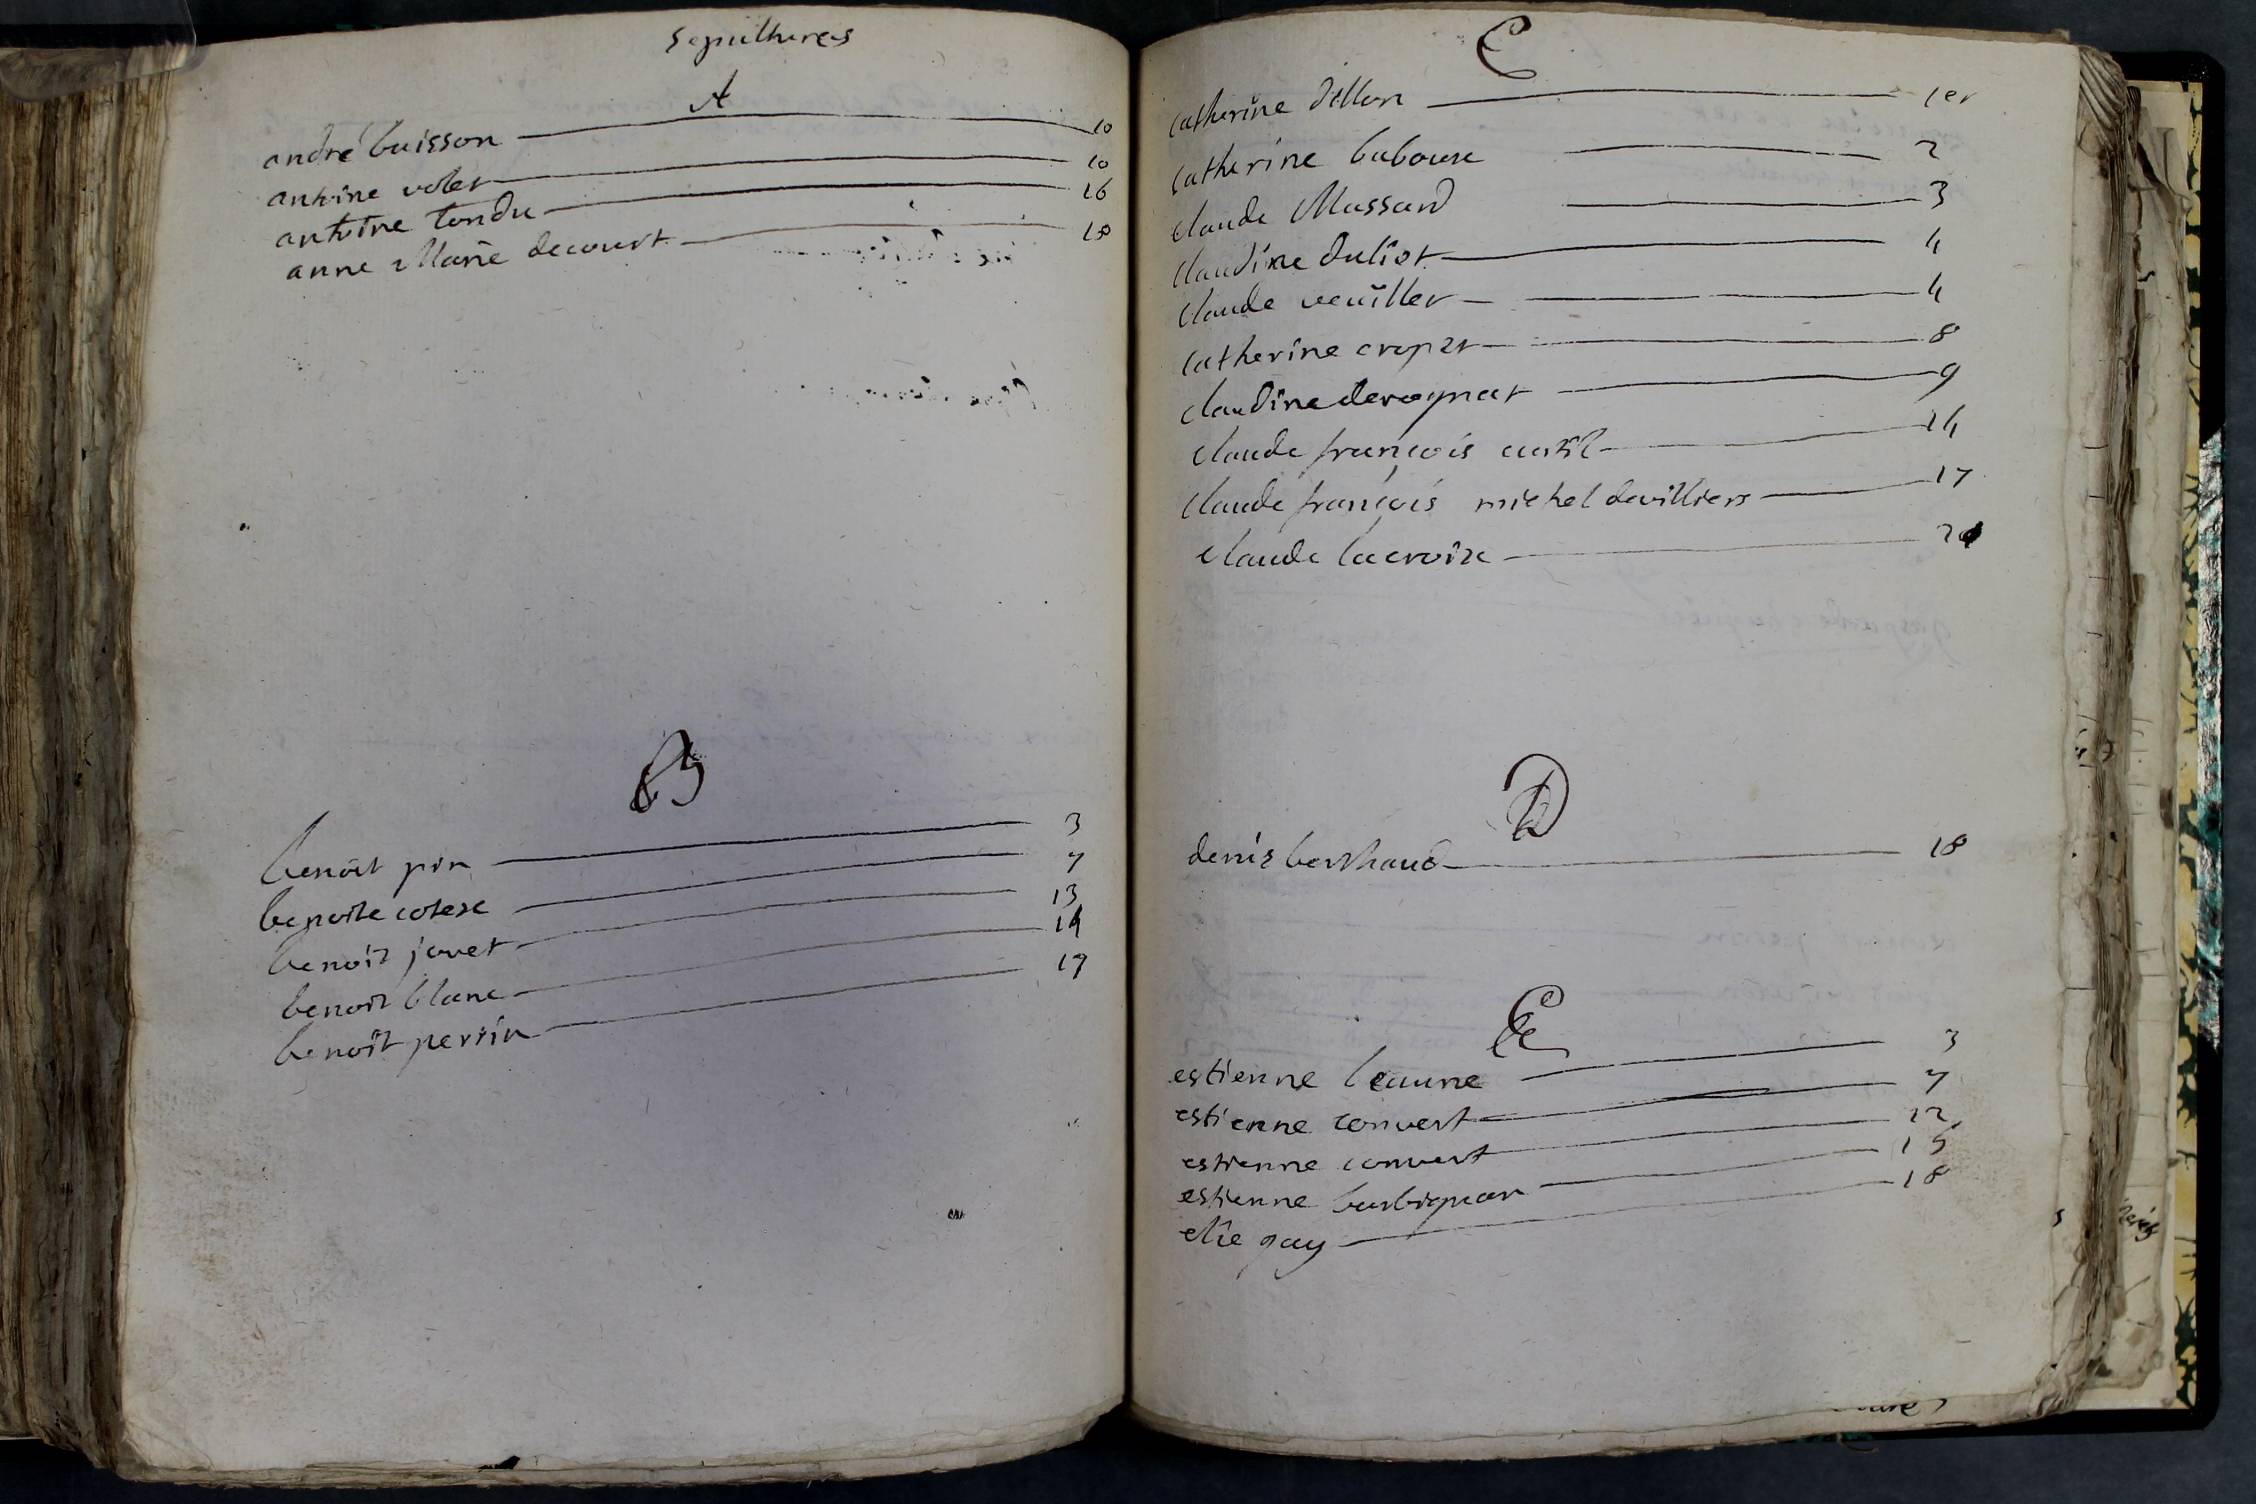 Sepultures
A
andré buisson 10
antoine volet 10
antoine tondu 16
anne Marie decourt 18
B
benoit pin 3
benoite cotese 7
benoit jovet 13
benoit blanc 14
benoit perrin 17
C
catherine dillon 1er
catherine baboux 2
claude Massard 3
claudine duliot 4
claude veuiller 4
catherine cropet 8
claudine derognat 9
claude françois curtil 14
claude françois michel devilliers 17
claude lacroix
D
denis berthaud 18
E
estienne beaune 3
estienne convert 7
estienne convert 12
estienne barbignan 15
elie gay 18